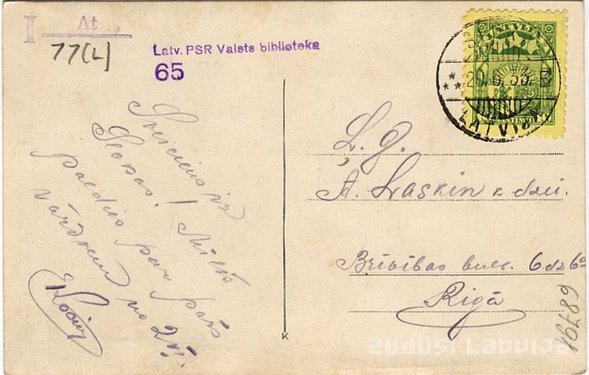 I At
77(L)
Latv. PSR Valsts bibliotēka
65
LATVIJA
29.6.33.
LATVIJA
Sveiciens iz
Slokas! Mīļš
paldies par pāris
vārdiem no 27.
Ļ. g.
A. Laskin k dzei.
Brīvības bulv. 6 dz 6a
Rīgā
16789
K
zudusi Latvija